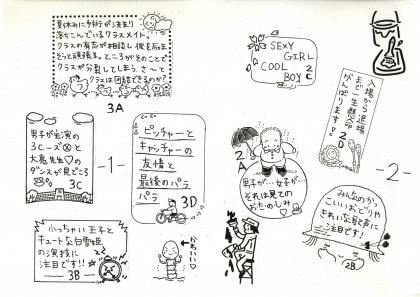 夏休みに手術が決まり
落ちこんでいるクラスメイト。
クラスの有志が相談し彼を励ま
そうと頑張る。ところがそのことで
クラスが分裂してしまう。さ〜て
クラスは団結できるのか?
3A
男子が主演の
3Cーズ♡と
大魔先生♡の
ダンスが見どころ
3C
-1-
ピッチャーと
キャッチャーの
友情と
最後のパラ
パラ
3D
小っちゃい王子と
キュートな白雪姫
の演技に
注目です!!
3B
かわいい♡
SEXY
GIRL
COOL
BOY
2C
入場から退場
まで一生懸命
がんばります!
2D
2A
男子が…女子が…
それは見ての
おたのしみ♡
-2-
みんなのか。
こいいおどりや
きれいな歌声に
注目です!
2B